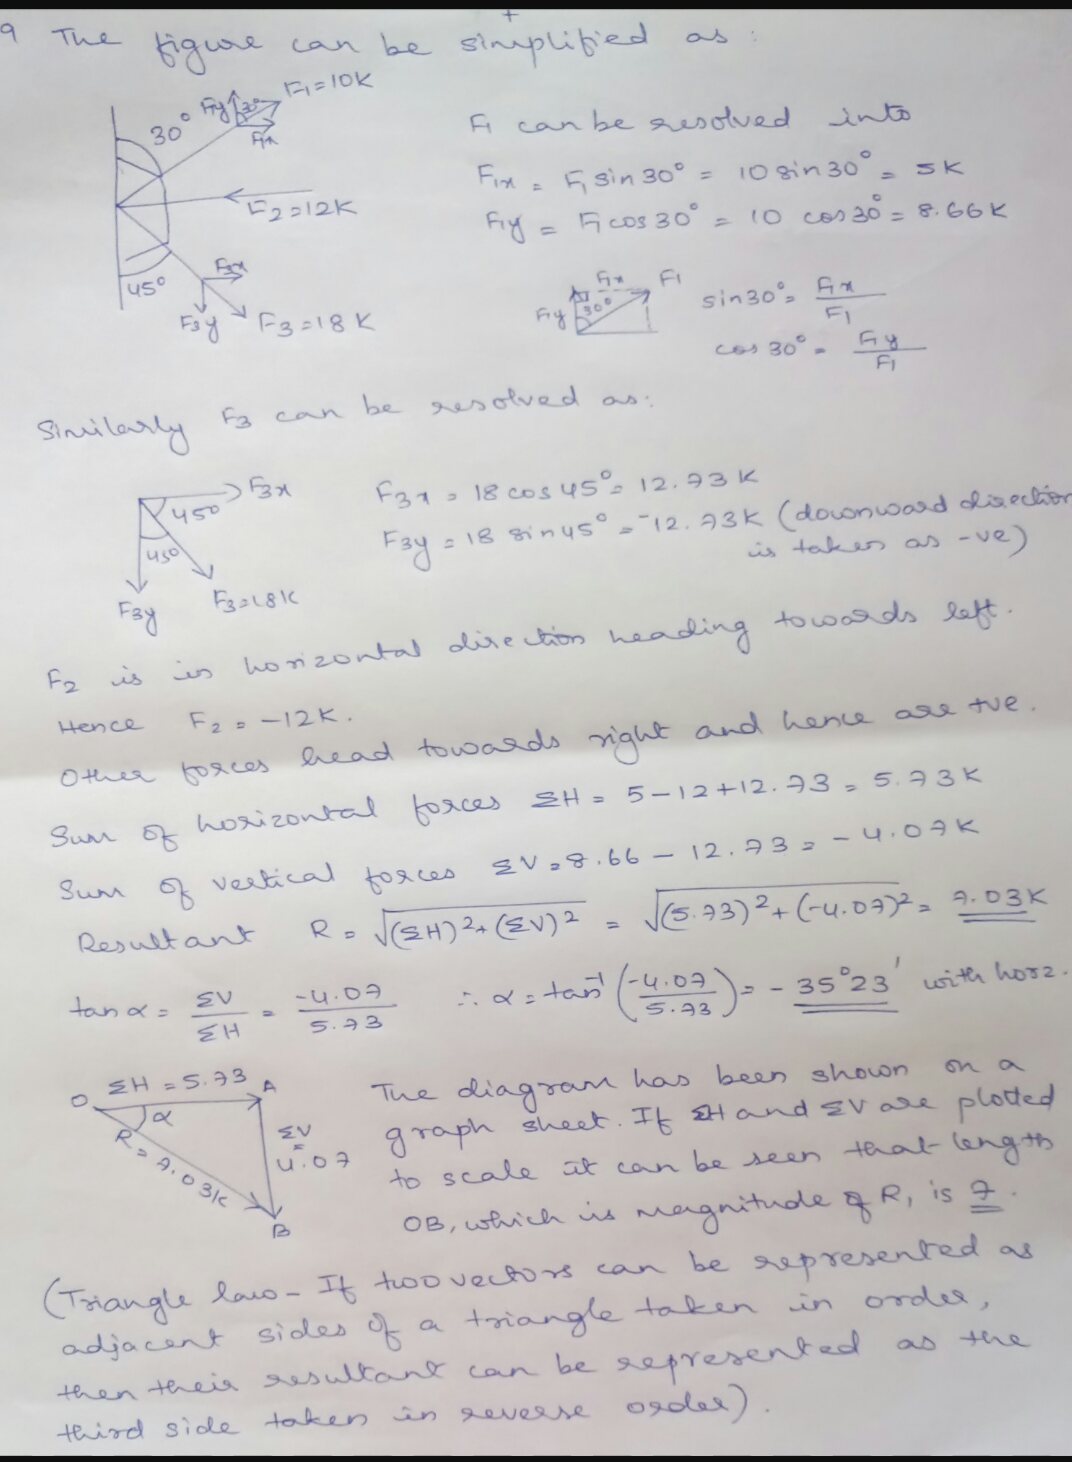 9 The figure can be simplified as :
30° F1y 30° F1=10K
F1x
F2=12K
45° F3x
F3y F3=18K
F1 can be resolved into
F1x = F1 sin30° = 10 sin30° = 5K
F1y = F1 cos30° = 10 cos30° = 8.66K
F1x F1
F1y 30°
sin30° = F1x
F1
cos30° = F1y
F1
Similarly F3 can be resolved as:
F3x
45°
45°
F3y F3=18K
F3x = 18 cos45° = 12.73K
F3y = 18 sin45° = -12.73K (downward direction
is taken as -ve)
F2 is in horizontal direction heading towards left.
Hence F2 = -12K.
Other forces head towards right and hence are +ve.
Sum of horizontal forces ΣH = 5-12+12.73 = 5.73K
Sum of vertical forces ΣV = 8.66 - 12.73 = -4.07K
Resultant R = √(ΣH)²+(ΣV)² = √(5.73)²+(-4.07)² = 7.03K
tan α = ΣV/ΣH = -4.07/5.73 ∴ α = tan⁻¹(-4.07/5.73) = -35°23' with horz.
O ΣH = 5.73 A
α
R = 7.03K
ΣV
=
4.07
B
The diagram has been shown on a
graph sheet. If ΣH and ΣV are plotted
to scale it can be seen that length
OB, which is magnitude of R, is 7.
(Triangle law - If two vectors can be represented as
adjacent sides of a triangle taken in order,
then their resultant can be represented as the
third side taken in reverse order).